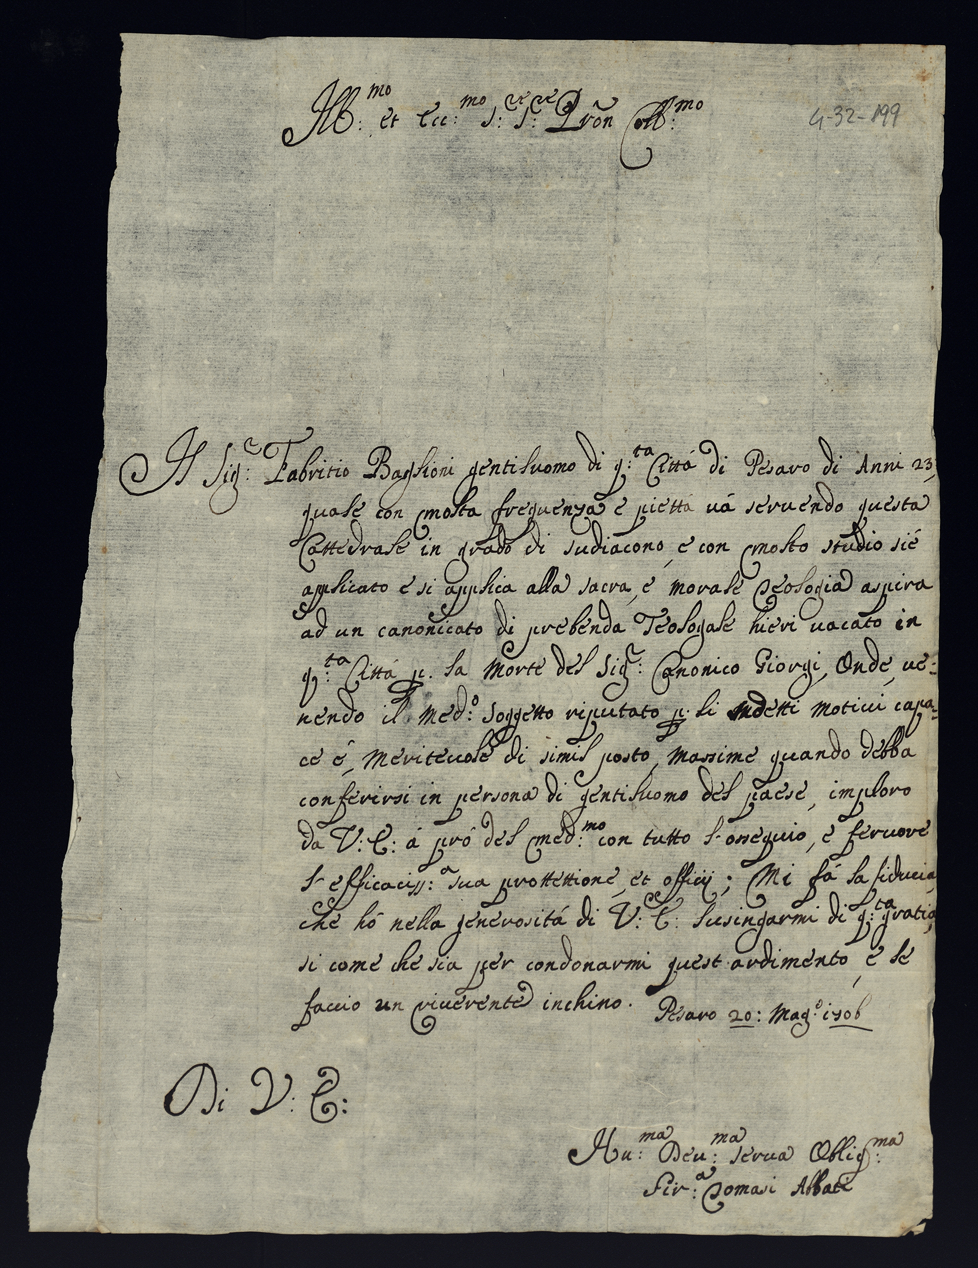 Ill:mo et Ecc:mo S:re S:re Prôn Coll:mo
4-32-199
Il Sig:re Fabritio Baglioni gentiluomo di q:ta Città di Pesaro di Anni 23,
quale con molta frequenza e pietta uà seruendo questa
Cattedrale in grado di sudiacono, e con molto studio sié
applicato e si applica alla sacra, e morale Teologia aspira
ad un canonicato di prebenda Teologale hieri uacato in
q:ta Città p. la Morte del Sig:re Canonico Giorgi, Onde, ue=
nendo il Med:o soggetto riputato p. li sudetti motiui capa=
ce é, meriteuole di simil posto, massime quando debba
conferirsi in persona di gentiluomo del paese, imploro
da V: E: á pró del med:mo con tutto l'ossequio, e feruore
l'efficaciss:a sua prottettione, et officij; Mi fá la fiducia,
che hó nella generositá di V: E: lusingarmi di q:ta gratia,
si come che sia per condonarmi quest'ardimento, e le
faccio un riuerente inchino. Pesaro 20: Mag:o 1706
Di V: E:
Hu:ma Deu:ma serua Oblig:ma
Fir:a Tomasi Abbati